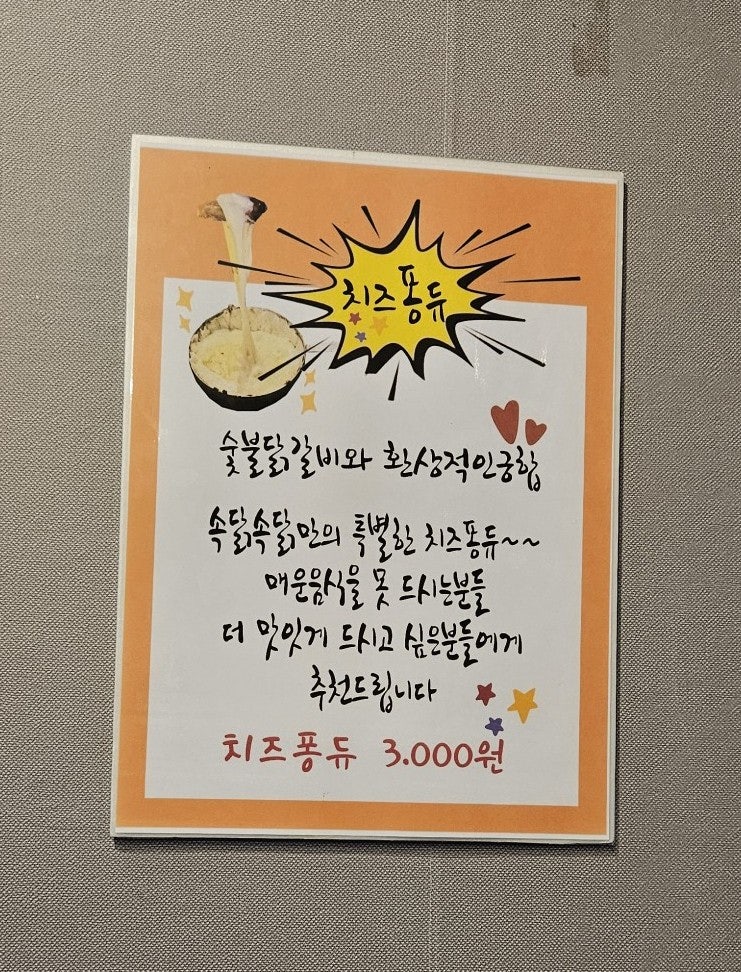 치즈퐁듀
숯불닭갈비와 환상적인궁합
속닭속닭만의 특별한 치즈퐁듀~~
매운음식을 못 드시는분들
더 맛있게 드시고 싶은분들에게
추천드립니다
치즈퐁듀 3.000원